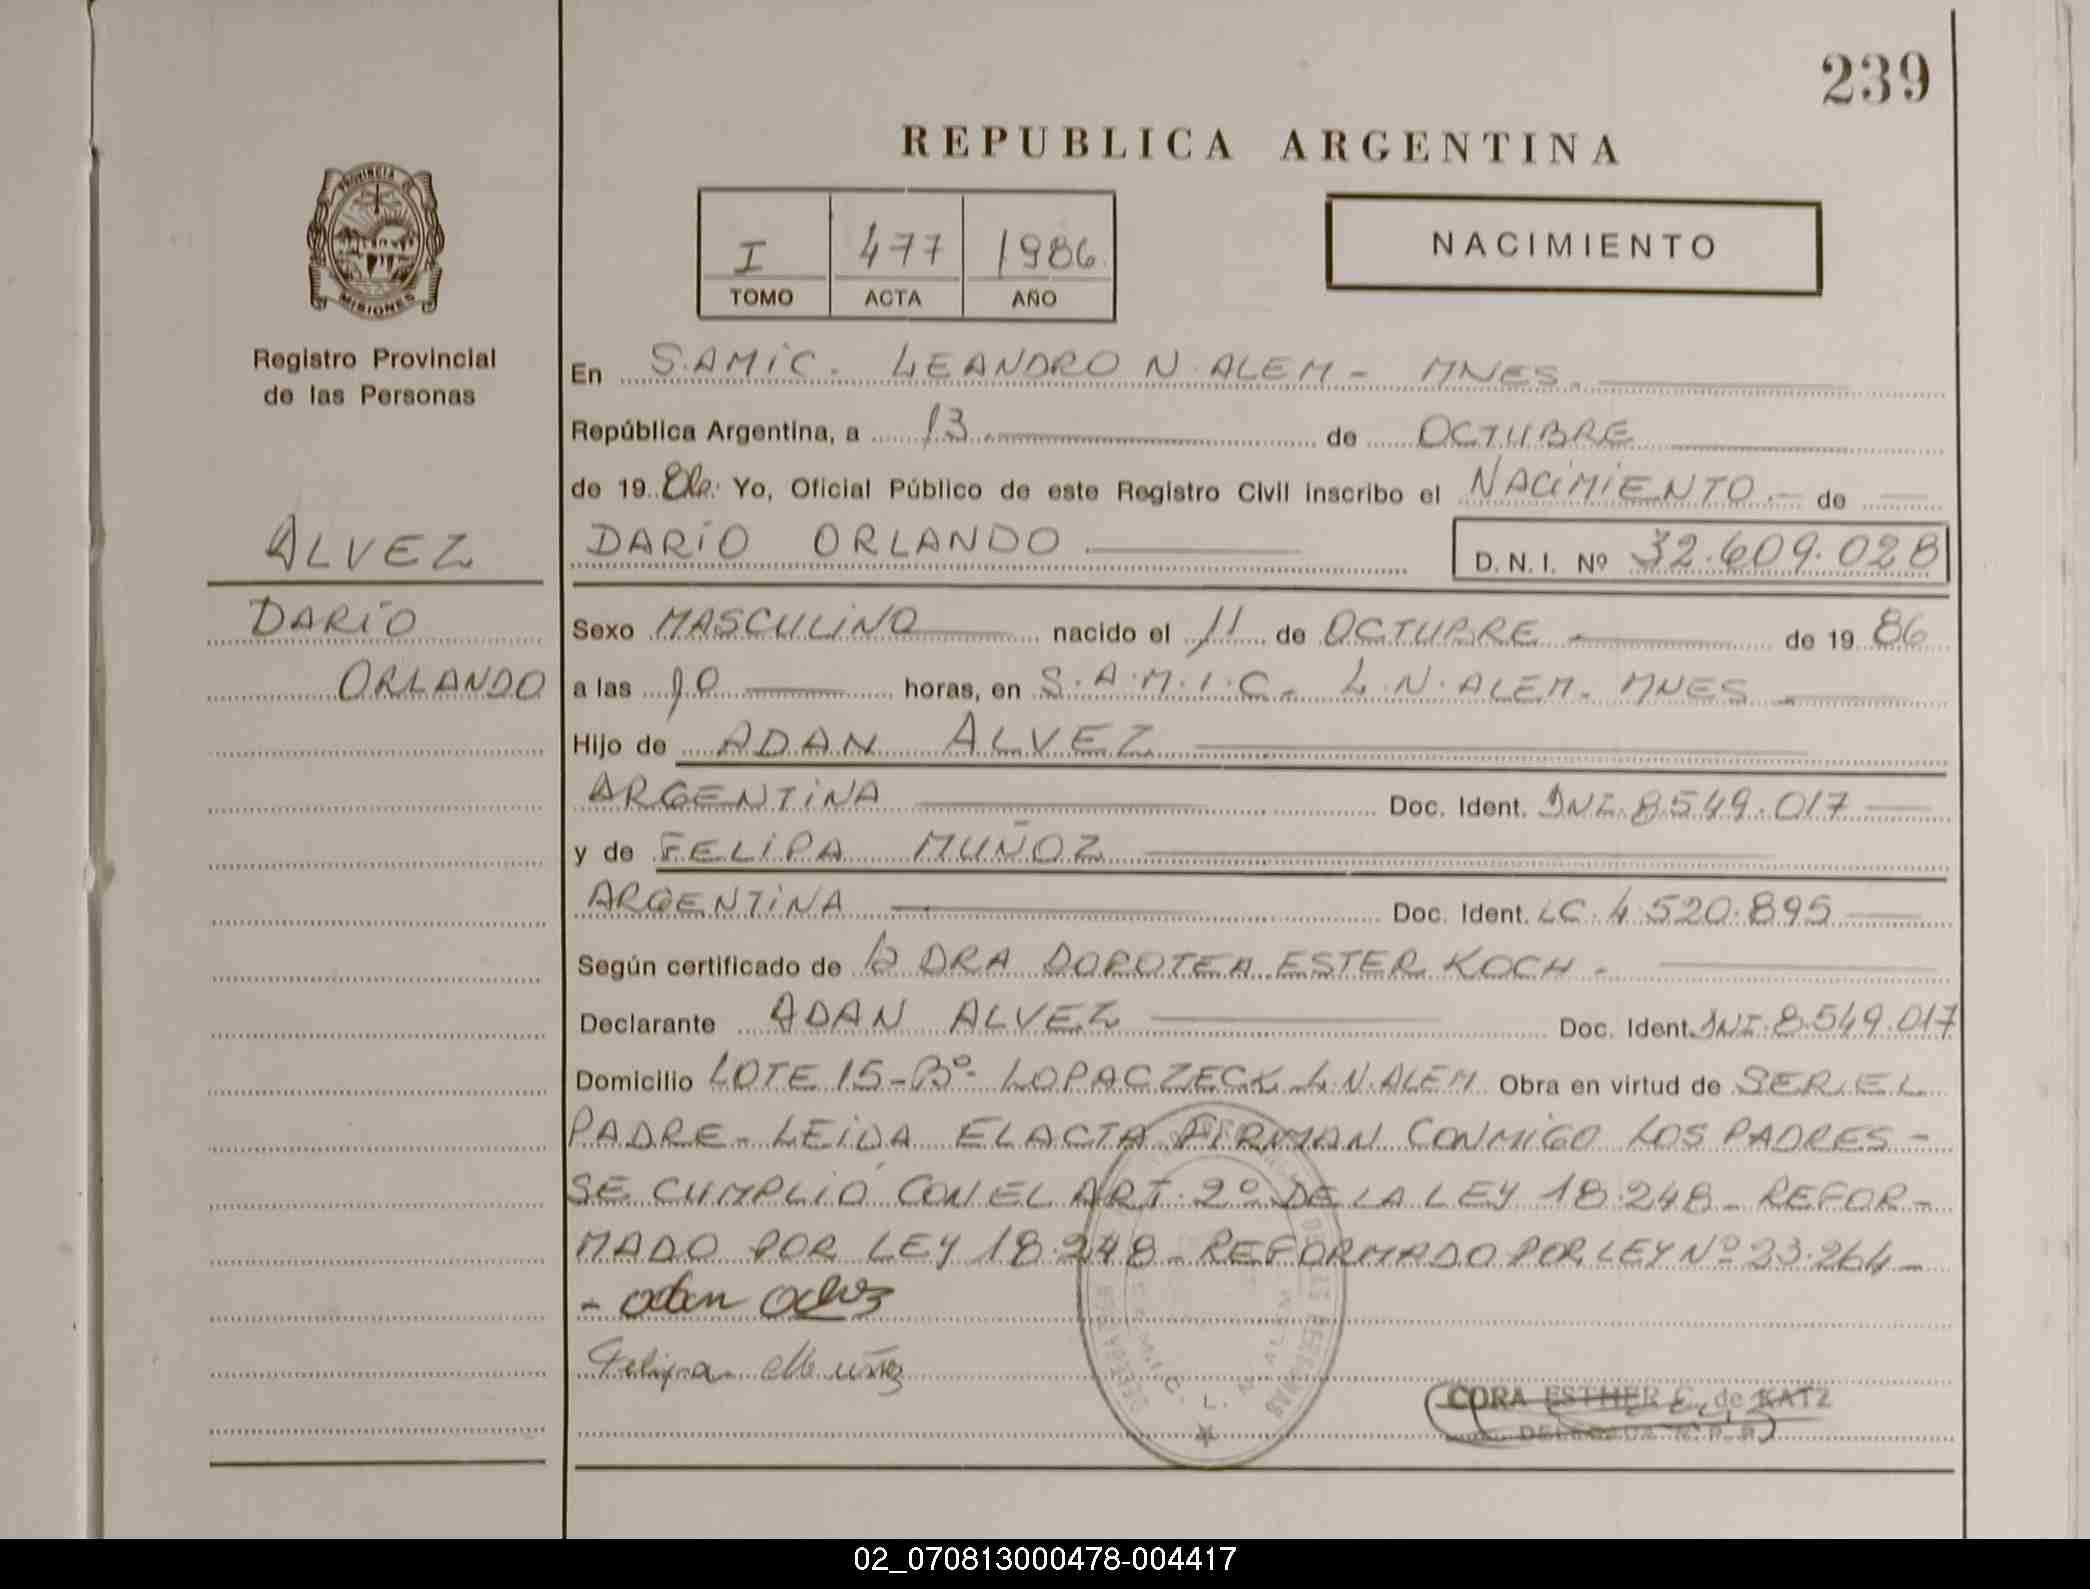 239
REPUBLICA ARGENTINA
PROVINCIA DE
MISIONES
I 477 1986
TOMO ACTA AÑO
NACIMIENTO
Registro Provincial
de las Personas
ALVEZ
DARÍO
ORLANDO
En S.AMIC. LEANDRO N. ALEM - MNES.
República Argentina, a 13 de OCTUBRE
de 19 86. Yo, Oficial Público de este Registro Civil inscribo el NACIMIENTO. de
DARÍO ORLANDO D.N.I. Nº 32.609.028
Sexo MASCULINO nacido el 11 de OCTUBRE de 19 86
a las 10 horas, en S.A.M.I.C. L.N.ALEM. MNES
Hijo de ADAN ALVEZ
ARGENTINA Doc. Ident. DNI.8.549.017
y de FELIPA MUÑOZ
ARGENTINA Doc. Ident. LC.4.520.895
Según certificado de la DRA DOROTEA ESTER KOCH.
Declarante ADAN ALVEZ Doc. Ident. DNI.8.549.017
Domicilio LOTE 15-Bº- LOPACZECK-L.N.ALEM Obra en virtud de SER EL
PADRE- LEIDA EL ACTA FIRMAN CONMIGO LOS PADRES-
SE CUMPLIÓ CON EL ART. 2º DE LA LEY 18.248- REFOR-
MADO POR LEY 18.248- REFORMADO POR LEY Nº 23.264-
- adan alvez
Felipa Muñoz
S.A.M.I.C. L. N. ALEM
CORA ESTHER C. de KATZ
02_070813000478-004417